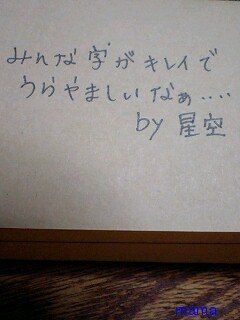 みんな字がキレイで
うらやましいなぁ‥‥
by 星空
mama